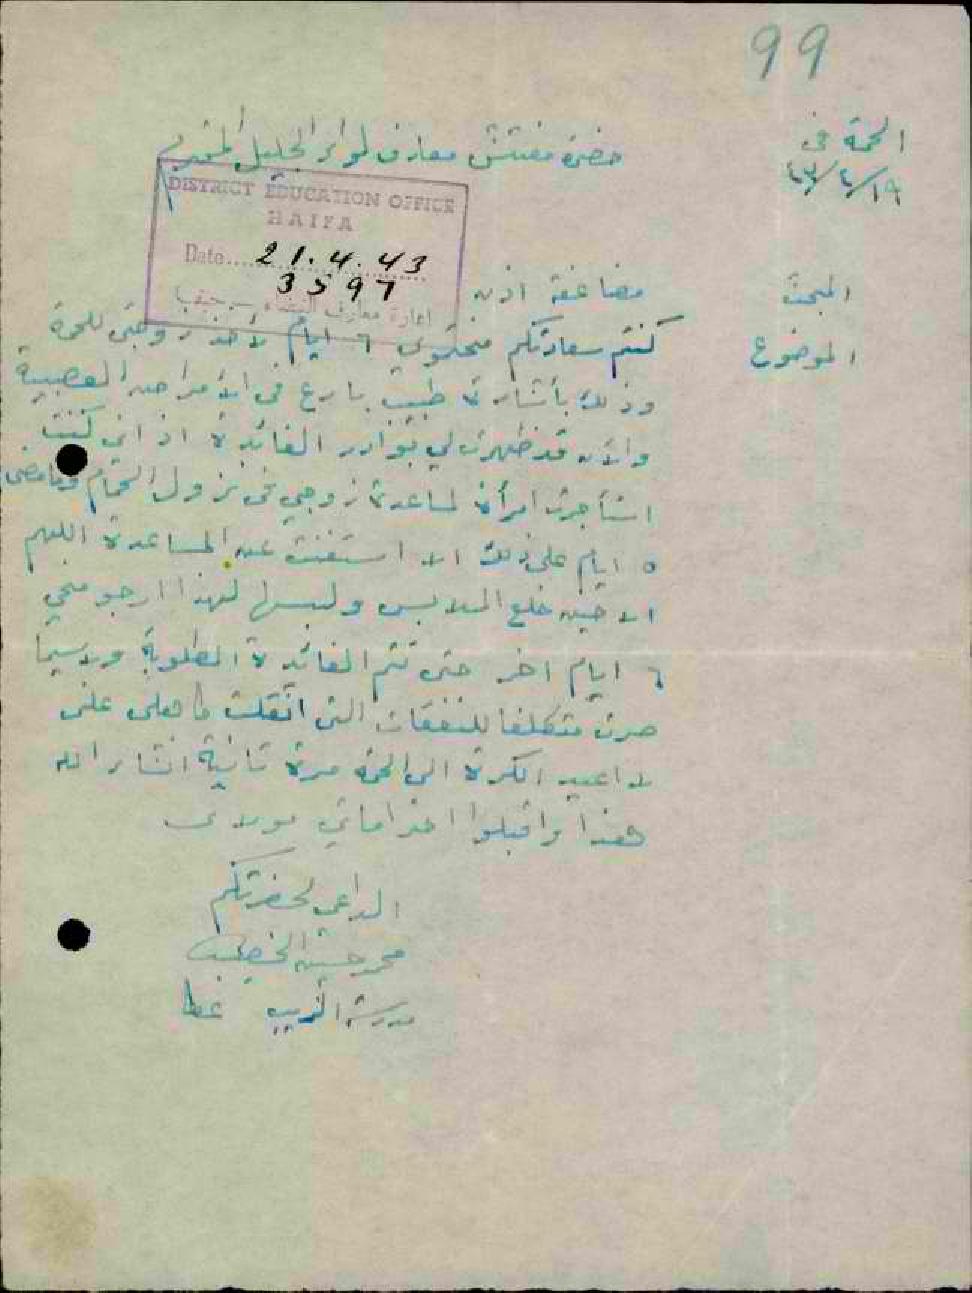 99
الحمة في
١٩/٤/٤٣
حضرة مفتش معارف لواء الجليل المحترم
DISTRICT EDUCATION OFFICE
HAIFA
Date.... 21.4.43
3597
ادارة معارف اللواء - حيفا
المبحث
مضاعفة اذن
الموضوع
كنتم سعادتكم منحتموني ٦ ايام لآخذ زوجتي للحمة
وذلك بأشارة طبيب بارع في الامراض العصبية
والآن قد ظهرت لي بوادر الفائدة اذ اني كنت
استأجرت امرأة لمساعدة زوجتي في نزول الحمام وما مضى
٥ ايام على ذلك الا استغنت عن المساعدة اللهم
الا حين خلع الملابس ولبسها لهذا ارجو منحي
٦ ايام اخر حتى تتم الفائدة المطلوبة ولاسيما
صرت متكلفا للنفقات التي اثقلت كاهلي على
لا اعيد الكرة الى الحمة مرة ثانية انشاء الله
هذا واقبلوا احتراماتي مولاي
الداعي لحضرتكم
محمد حسين الخطيب
مدرسة الزيب عكا